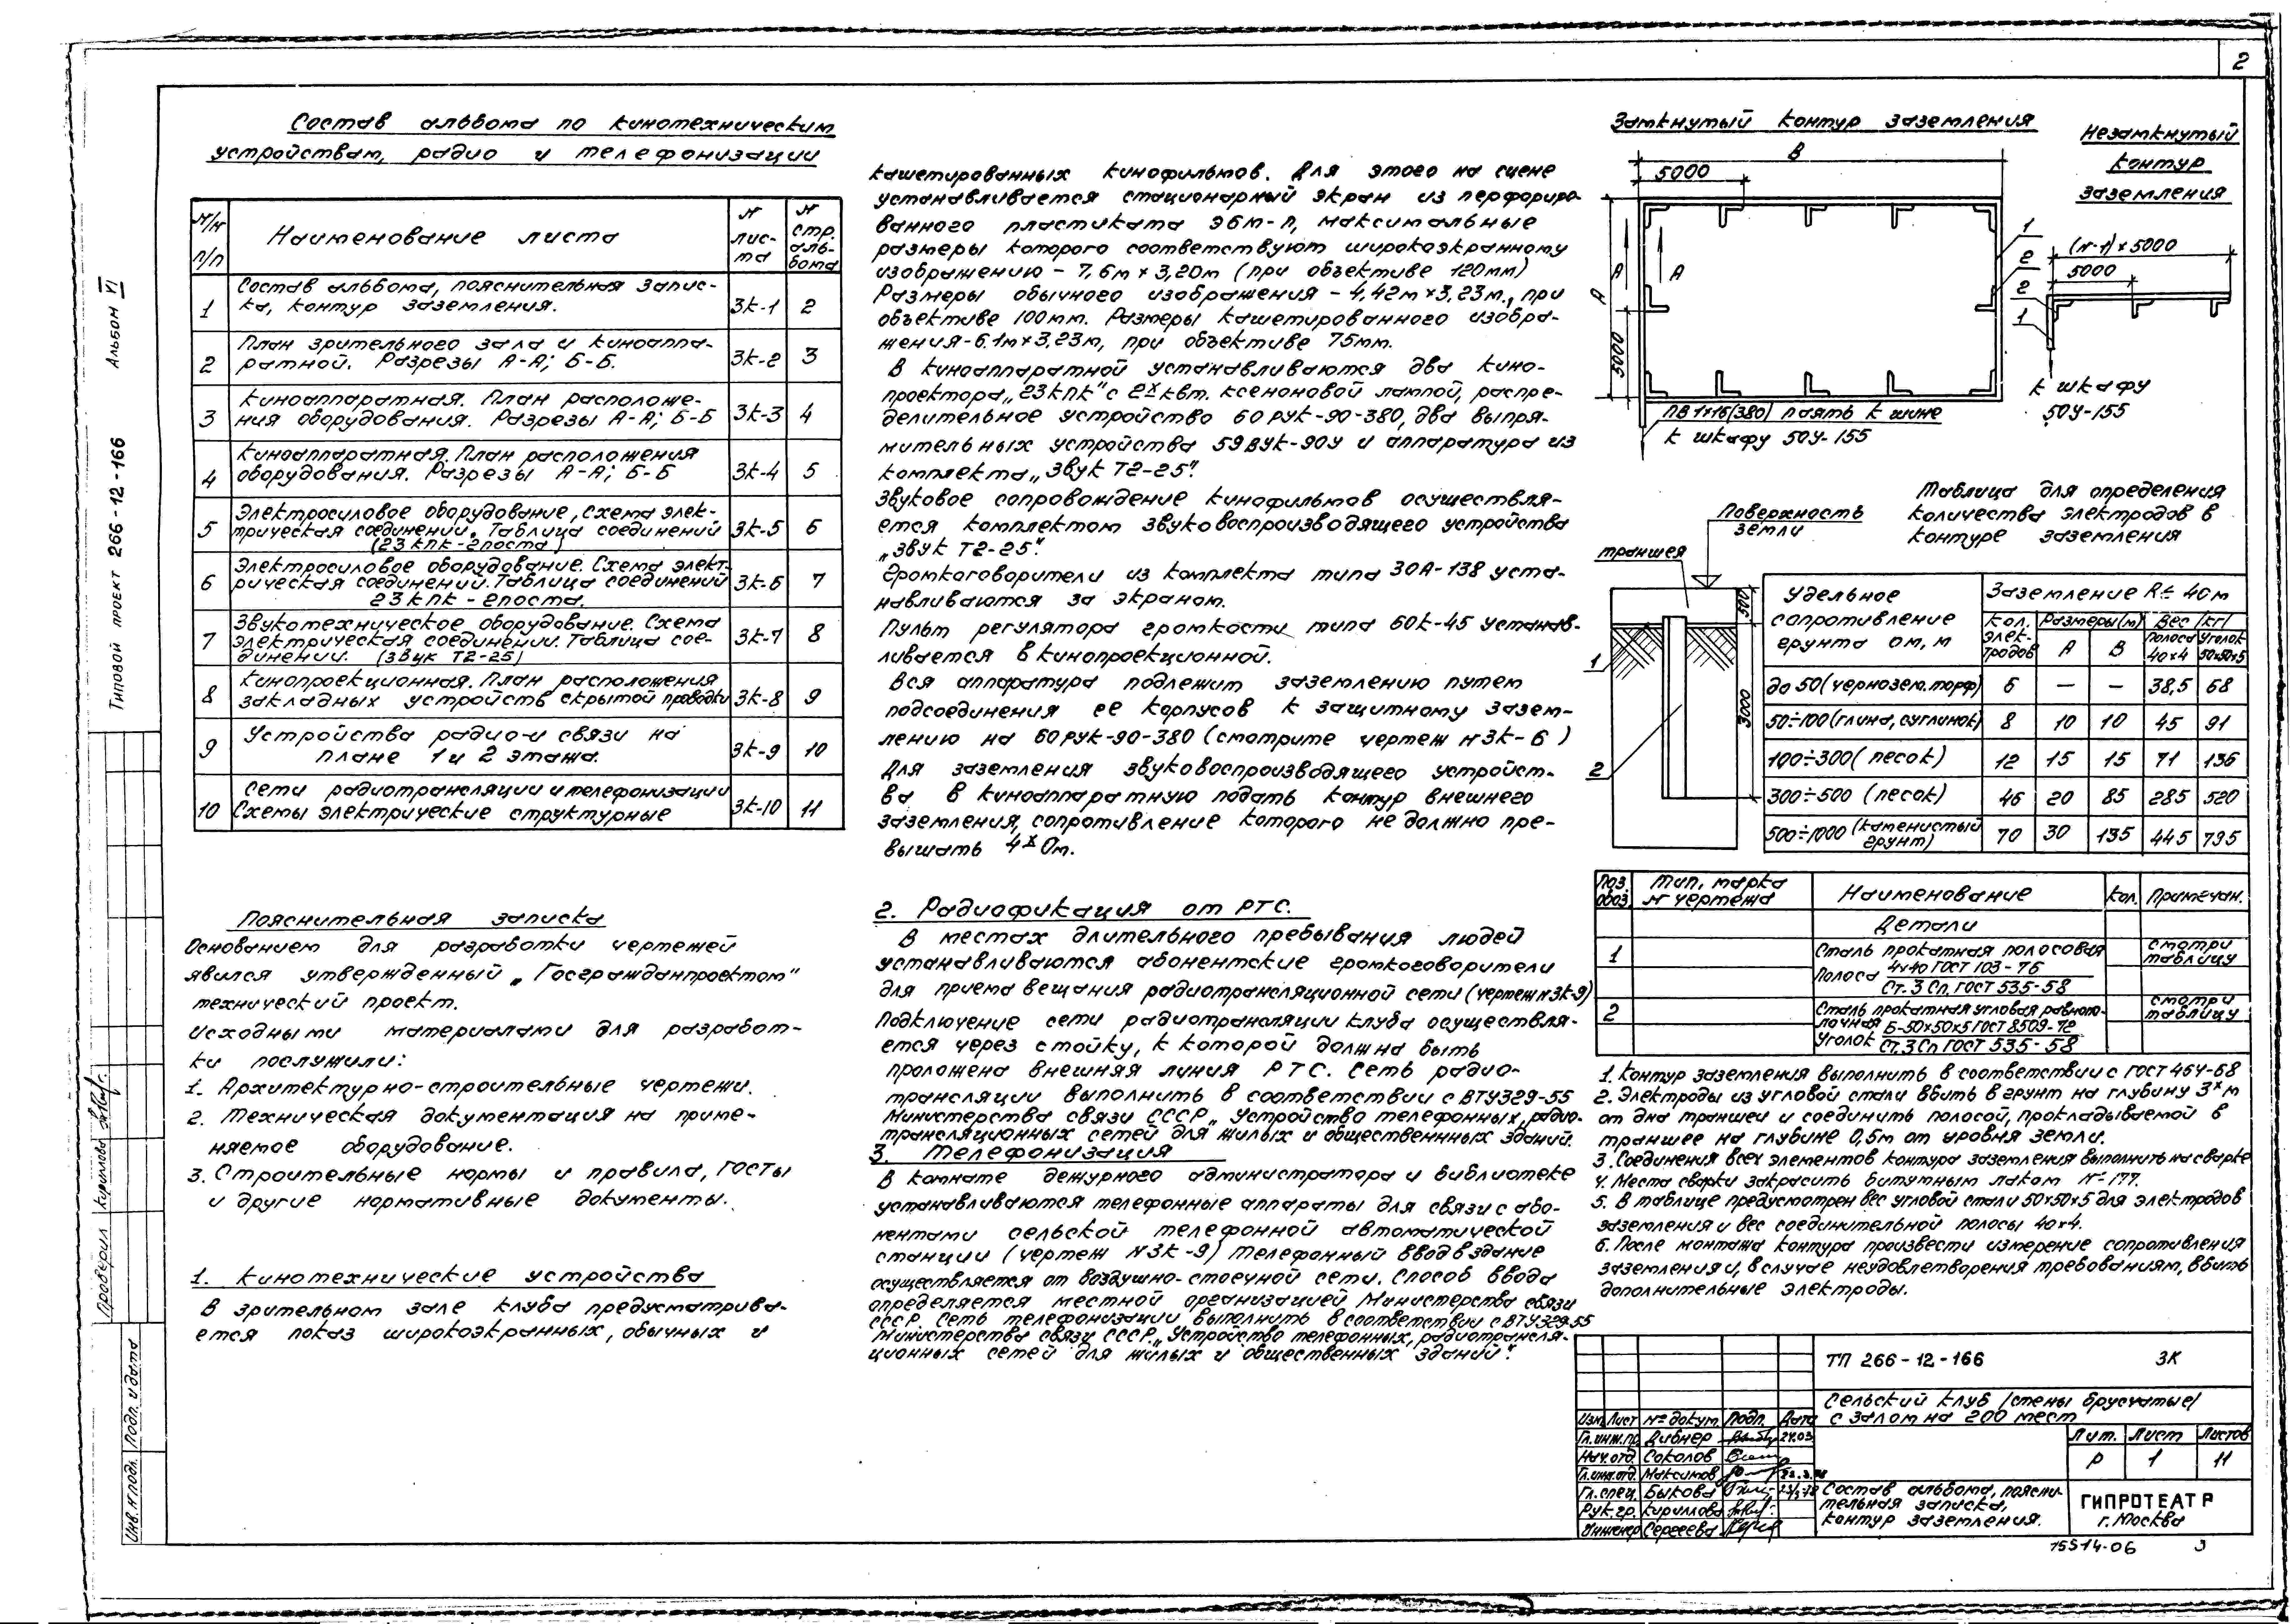 2
Состав альбома по кинотехническим
устройствам, радио и телефонизации
N/N п/п | Наименование листа | N листа | N стр. альбома
1 | Состав альбома, пояснительная записка, контур заземления. | ЗК-1 | 2
2 | План зрительного зала и киноаппаратной. Разрезы А-А; Б-Б. | ЗК-2 | 3
3 | Киноаппаратная. План расположения оборудования. Разрезы А-А; Б-Б | ЗК-3 | 4
4 | Киноаппаратная. План расположения оборудования. Разрезы А-А; Б-Б | ЗК-4 | 5
5 | Электросиловое оборудование, схема электрическая соединений. Таблица соединений (23 КПК-2поста) | ЗК-5 | 6
6 | Электросиловое оборудование. Схема электрическая соединений. Таблица соединений 23 КПК - 2поста. | ЗК-6 | 7
7 | Звукотехническое оборудование. Схема электрическая соединений. Таблица соединений. (Звук Т2-25) | ЗК-7 | 8
8 | Кинопроекционная. План расположения закладных устройств скрытой проводки | ЗК-8 | 9
9 | Устройства радио-и связи на плане 1 и 2 этажа. | ЗК-9 | 10
10 | Сети радиотрансляции и телефонизации Схемы электрические структурные | ЗК-10 | 11
Пояснительная записка
Основанием для разработки чертежей
явился утвержденный „Госгражданпроектом"
технический проект.
Исходными материалами для разработ-
ки послужили:
1. Архитектурно-строительные чертежи.
2. Техническая документация на приме-
няемое оборудование.
3. Строительные нормы и правила, ГОСТы
и другие нормативные документы.
1. Кинотехнические устройства
В зрительном зале клуба предусматрива-
ется показ широкоэкранных, обычных и
кашетированных кинофильмов. Для этого на сцене
устанавливается стационарный экран из перфориро-
ванного пластиката ЭБМ-П, максимальные
размеры которого соответствуют широкоэкранному
изображению - 7,6м х 3,20м (при объективе 120мм)
Размеры обычного изображения - 4,42м х 3,23м., при
объективе 100мм. Размеры кашетированного изобра-
жения-6.1м х 3,23м, при объективе 75мм.
В киноаппаратной устанавливаются два кино-
проектора „23КПК" с 2х квт. ксеноновой лампой, распре-
делительное устройство 60 РУК-90-380, два выпря-
мительных устройства 59ВУК-90У и аппаратура из
комплекта „Звук Т2-25".
Звуковое сопровождение кинофильмов осуществля-
ется комплектом звуковоспроизводящего устройства
„Звук Т2-25".
Громкоговорители из комплекта типа 30А-138 уста-
навливаются за экраном.
Пульт регулятора громкости типа 60К-45 устанав-
ливается в кинопроекционной.
Вся аппаратура подлежит заземлению путем
подсоединения ее корпусов к защитному зазем-
лению на 60РУК-90-380 (смотрите чертеж N ЗК-6)
Для заземления звуковоспроизводящего устройст-
ва в киноаппаратную подать контур внешнего
заземления, сопротивление которого не должно пре-
вышать 4х Ом.
2. Радиофикация от РТС.
В местах длительного пребывания людей
устанавливаются абонентские громкоговорители
для приема вещания радиотрансляционной сети (чертеж N ЗК-9)
Подключение сети радиотрансляции клуба осуществля-
ется через стойку, к которой должна быть
проложена внешняя линия РТС. Сеть радио-
трансляции выполнить в соответствии с ВТУ329-55
Министерства связи СССР „Устройство телефонных, радио-
трансляционных сетей для жилых и общественнных зданий.
3. Телефонизация
В комнате дежурного администратора и библиотеке
устанавливаются телефонные аппараты для связи с або-
нентами сельской телефонной автоматической
станции (чертеж N ЗК-9) Телефонный ввод в здание
осуществляется от воздушно-стоечной сети. Способ ввода
определяется местной организацией Министерства связи
СССР. Сеть телефонизации выполнить в соответствии с ВТУ329-55
Министерства связи СССР „Устройство телефонных, радиотрансля-
ционных сетей для жилых и общественных зданий".
Замкнутый контур заземления
В
5000
А
А
А
5000
1
2
ПВ 1х16(380) паять к шине
К шкафу 50У-155
Незамкнутый
контур
заземления
(N-1) х 5000
5000
2
1
К шкафу
50У-155
Поверхность
земли
траншея
500
3000
1
2
Таблица для определения
количества электродов в
контуре заземления
Удельное сопротивление грунта ом, м | Заземление R≤ 4ом
Кол. электродов | Размеры(м) А | В | Вес /кг/ Полоса 40х4 | Уголок 50х50х5
до 50 (чернозем. торф) | 6 | — | — | 38,5 | 68
50÷100 (глина, суглинок) | 8 | 10 | 10 | 45 | 91
100÷300 (песок) | 12 | 15 | 15 | 71 | 136
300÷500 (песок) | 46 | 20 | 85 | 285 | 520
500÷1000 (каменистый грунт) | 70 | 30 | 135 | 445 | 795
Поз. обоз. | Тип, марка N чертежа | Наименование | Кол. | Примечан.
Детали
1 | Сталь прокатная полосовая Полоса 4х40 ГОСТ 103-76 Ст. 3 Сп. ГОСТ 535-58 | смотри таблицу
2 | Сталь прокатная угловая равнополочная Уголок Б-50х50х5 ГОСТ 8509-72 Ст. 3 Сп ГОСТ 535-58 | смотри таблицу
1. Контур заземления выполнить в соответствии с ГОСТ 464-68
2. Электроды из угловой стали вбить в грунт на глубину 3х м
от дна траншеи и соединить полосой, прокладываемой в
траншее на глубине 0,5м от уровня земли.
3. Соединения всех элементов контура заземления выполнить на сварке
4. Места сварки закрасить битумным лаком №177.
5. В таблице предусмотрен вес угловой стали 50х50х5 для электродов
заземления и вес соединительной полосы 40х4.
6. После монтажа контура произвести измерение сопротивления
заземления и, в случае неудовлетворения требованиям, вбить
дополнительные электроды.
ТП 266-12-166 ЗК
Сельский клуб /стены брусчатые/
с залом на 200 мест
Изм. Лист № докум. Подп. Дата
Гл. инж. пр. Дивнер 24.03
Нач. отд. Соколов
Гл. инж. отд. Максимов
Гл. спец. Быкова
Рук. гр. Кириллова
Инженер Сергеева
Лит. Лист Листов
Р 1 11
Состав альбома, поясни-
тельная записка,
контур заземления.
ГИПРОТЕАТР
г. Москва
15514-06 3
Типовой проект 266-12-166 Альбом VI
Проверил Кириллова
Инв. N подл. Подп. и дата